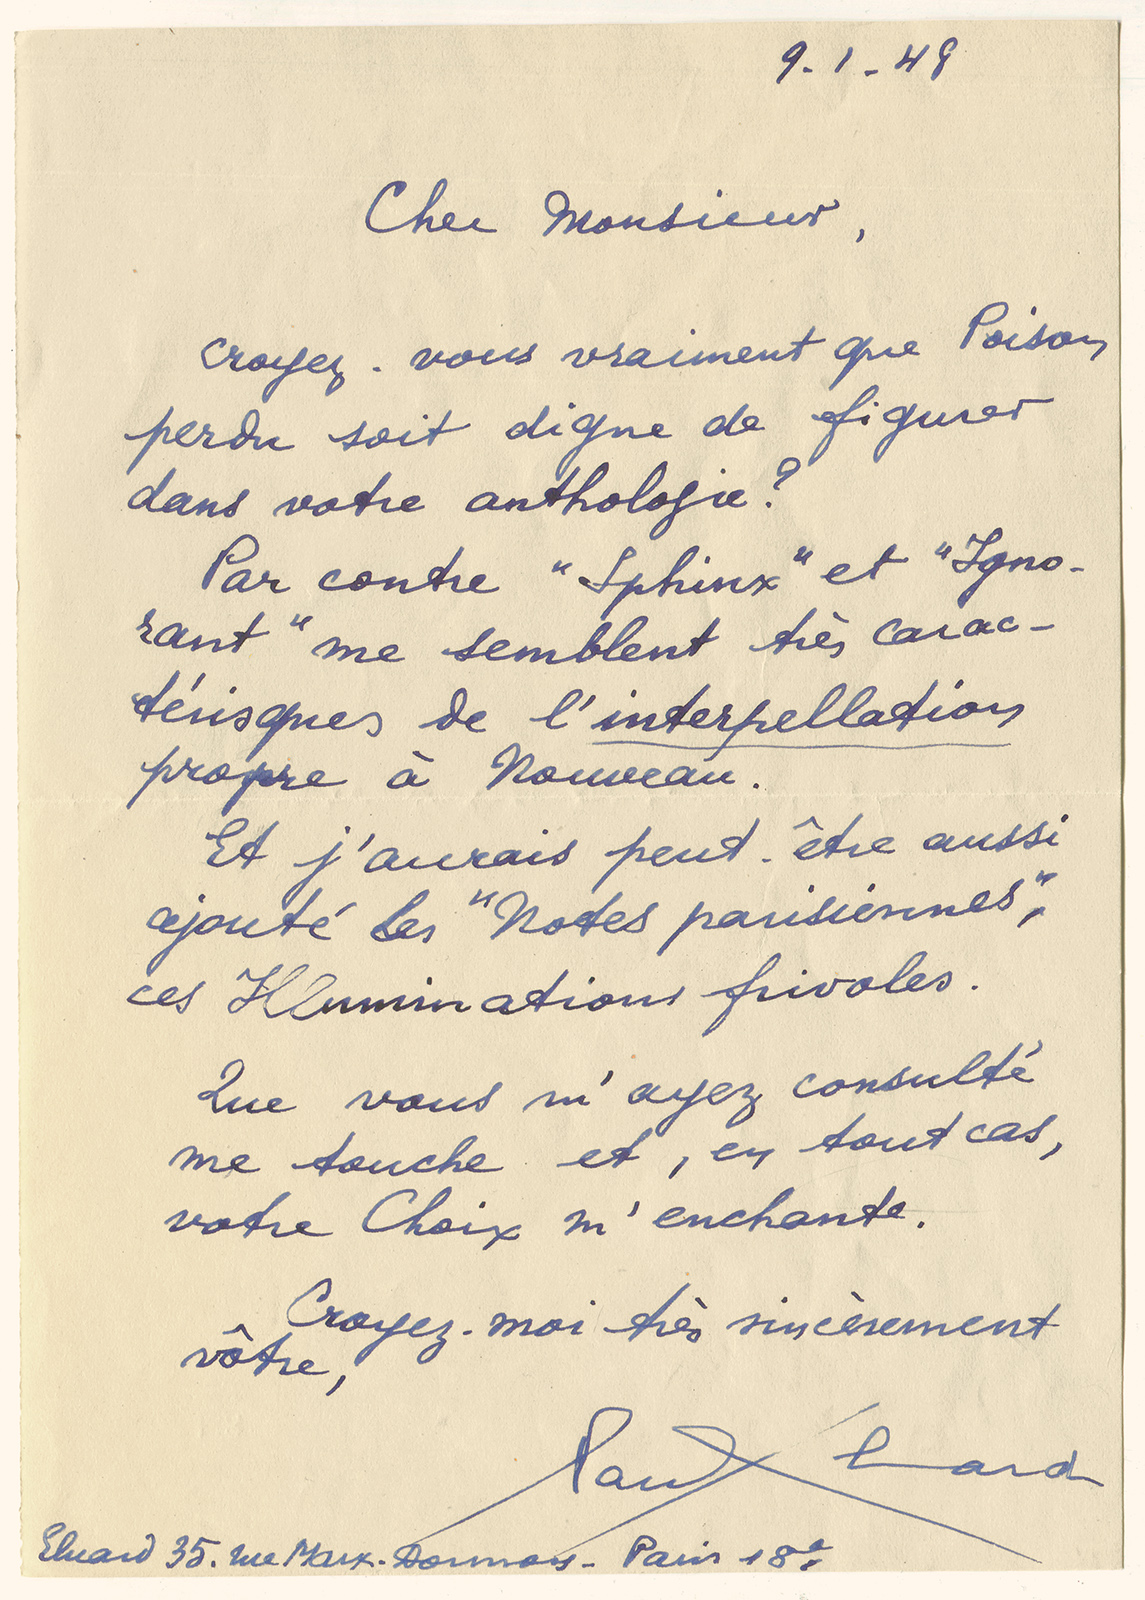 9.1.49
Cher Monsieur,
croyez-vous vraiment que Poison
perdu soit digne de figurer
dans votre anthologie?
Par contre "Sphinx" et "Igno-
rant" me semblent très carac-
térisques de l'interpellation
propre à Nouveau.
Et j'aurais peut-être aussi
ajouté les "Notes parisiennes",
ces Illuminations frivoles.
Que vous m'ayez consulté
me touche et, en tout cas,
votre Choix m'enchante.
Croyez-moi très sincèrement
vôtre,
Paul Eluard
Eluard 35. rue Marx-Dormoy - Paris 18e